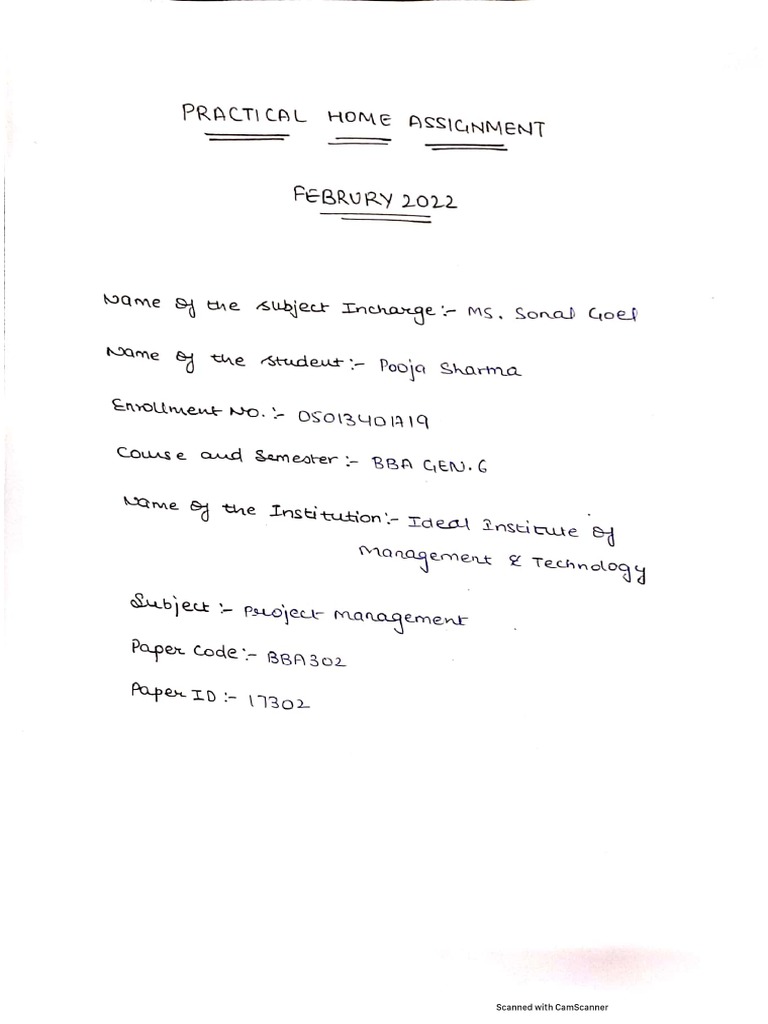 PRACTICAL HOME ASSIGNMENT
FEBRURY 2022
Name of the subject Incharge:- MS. Sonal Goel
Name of the student:- Pooja Sharma
Enrollment NO.:- 05013401719
Course and Semester:- BBA GEN. 6
Name of the Institution:- Ideal Institute of
Management & Technology
Subject:- Project Management
Paper Code:- BBA302
Paper ID:- 17302
Scanned with CamScanner